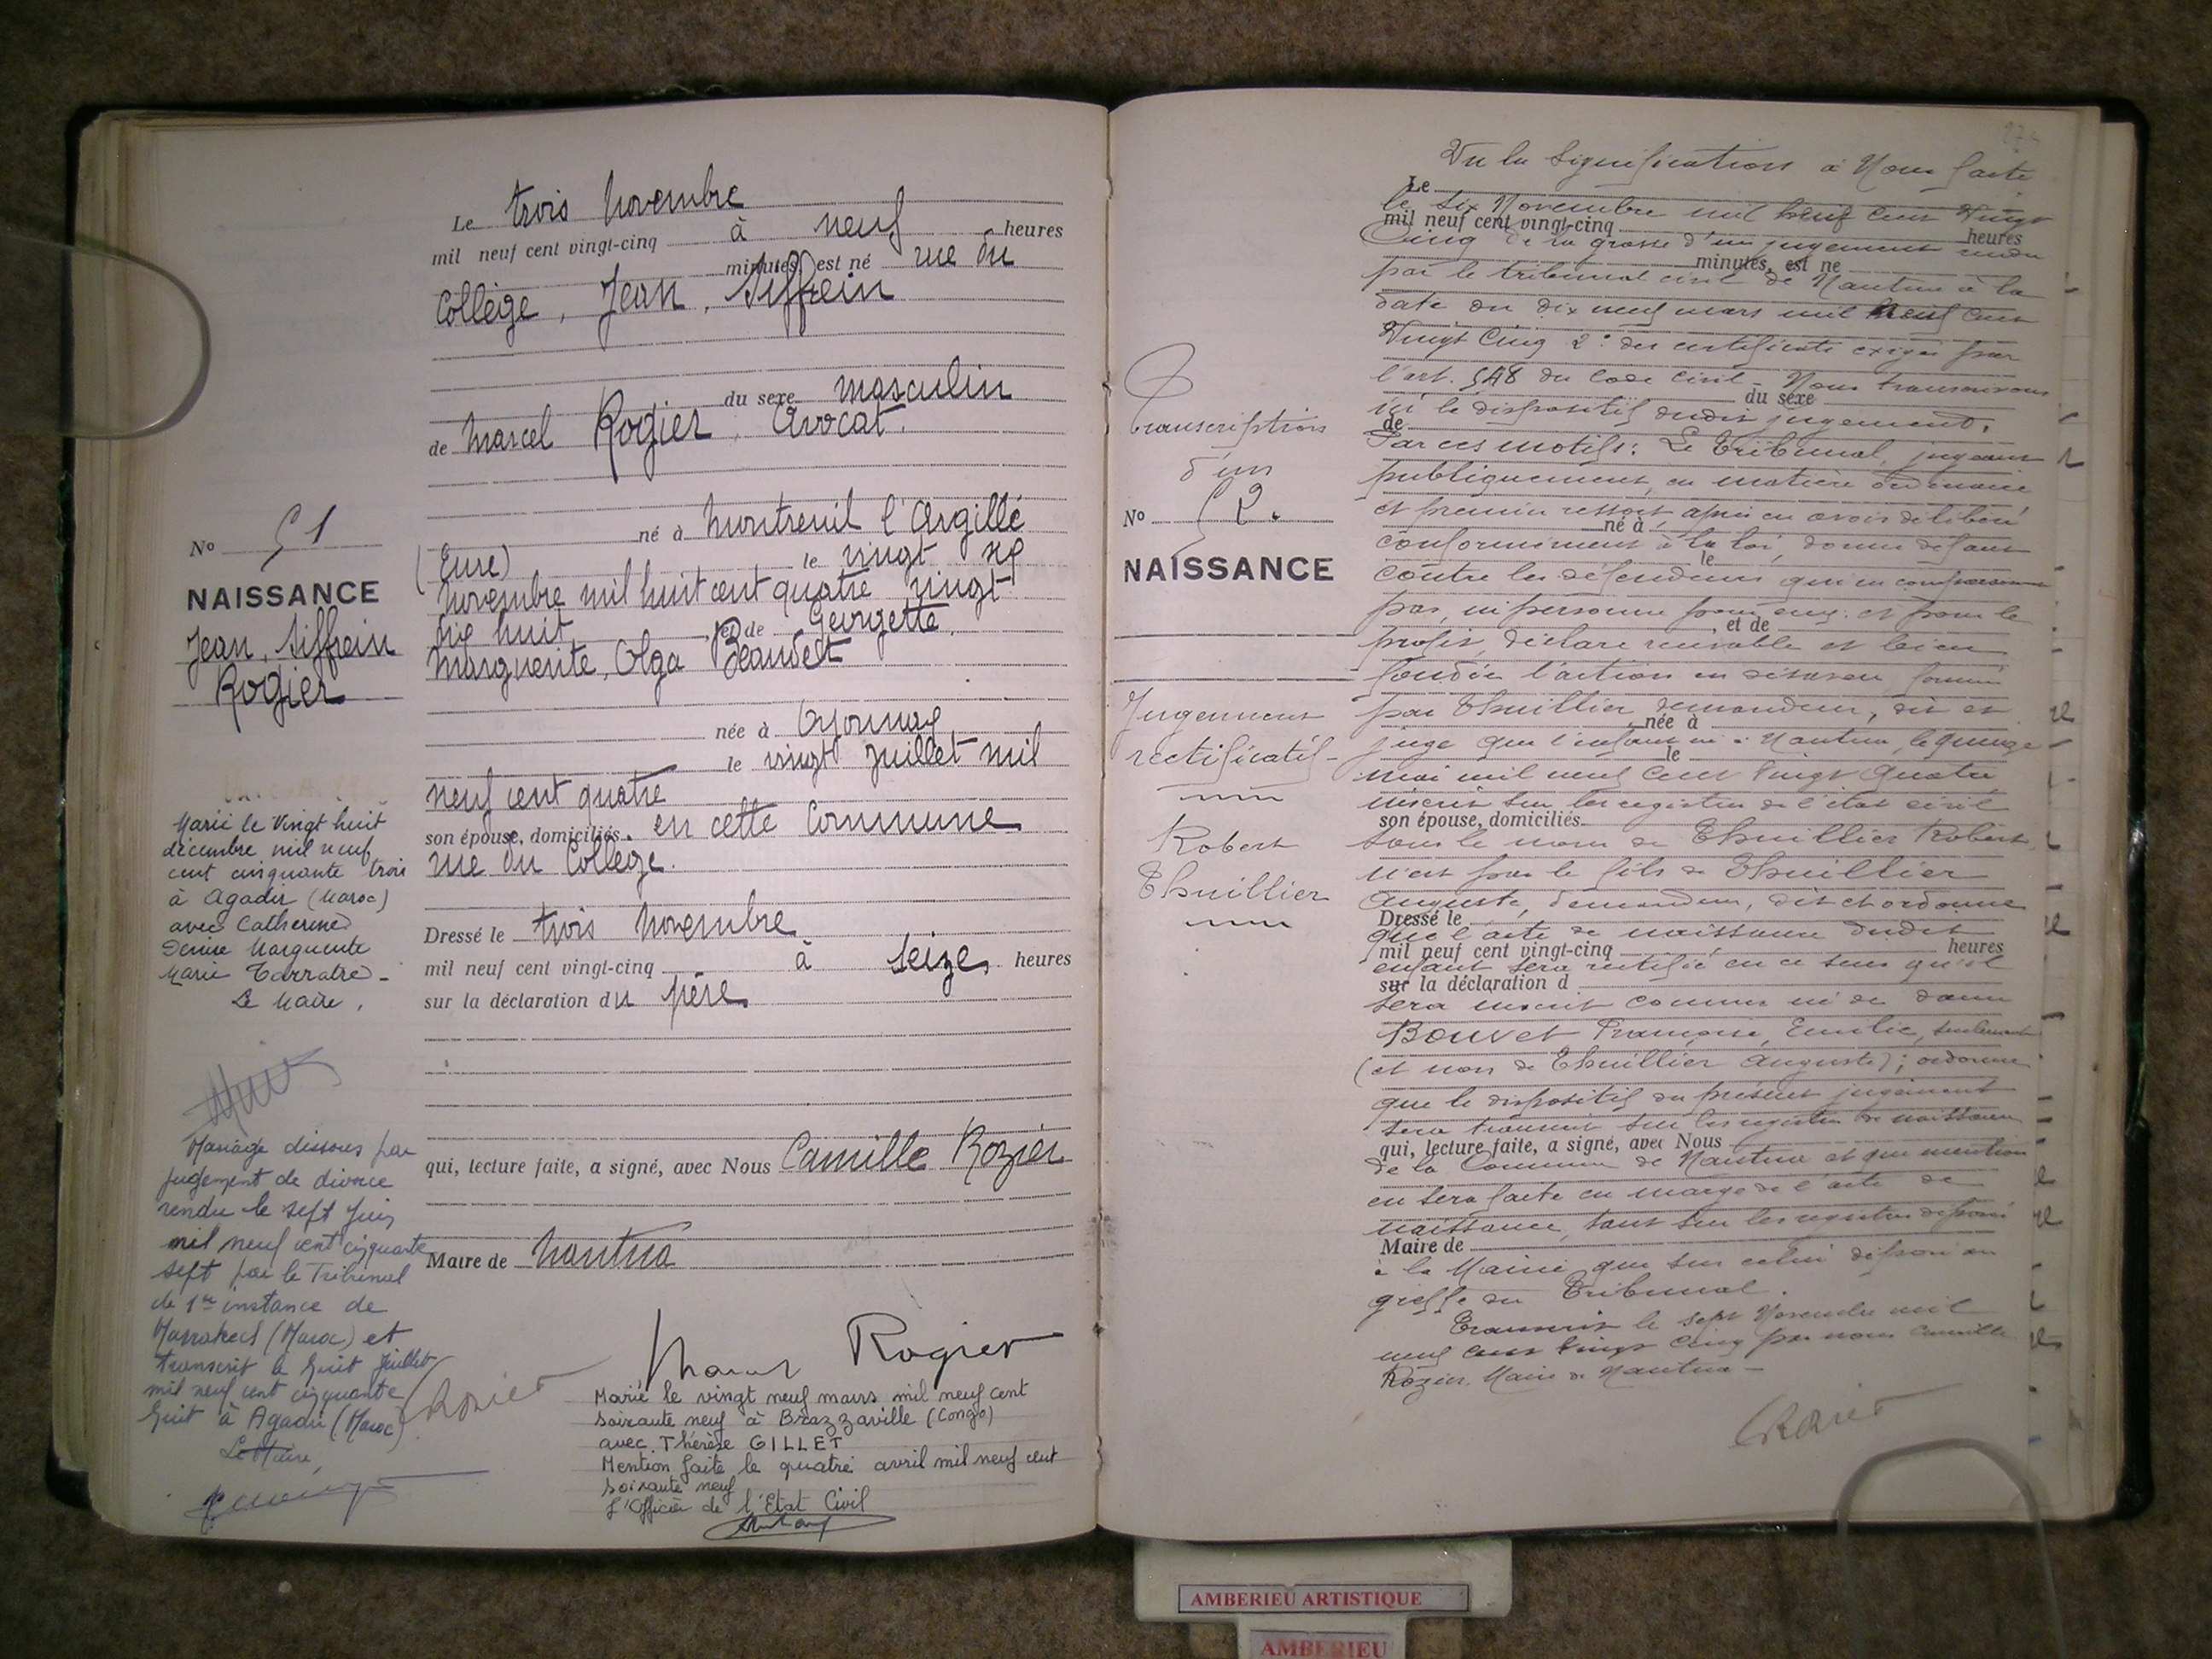 Le trois Novembre
mil neuf cent vingt-cinq à neuf heures
minutes, est né rue du
Collège, Jean, Siffrein
du sexe masculin
de Marcel Rogier, Avocat.
né à Montreuil l'Argillé
(Eure) le vingt six
novembre mil huit cent quatre vingt
dix huit, et de Georgette,
Marguerite, Olga Beaudet
née à Oyonnax
le vingt Juillet mil
neuf cent quatre
son épouse, domiciliés. en cette Commune
rue du Collège.
Dressé le trois Novembre
mil neuf cent vingt-cinq à seize heures
sur la déclaration du père
qui, lecture faite, a signé, avec Nous Camille Rozier
Maire de Nantua
Rogier
Marié le vingt neuf mars mil neuf cent
soixante neuf à Brazzaville (Congo)
avec Thérèse GILLET
Mention faite le quatre avril mil neuf cent
soixante neuf
L'Officier de l'Etat Civil
No 51
NAISSANCE
Jean, Siffrein
Rogier
Marié le Vingt huit
décembre mil neuf
cent cinquante trois
à Agadir (Maroc)
avec Catherine
Denise Marguerite
Marie
Le Maire,
Mariage dissous par
jugement de divorce
rendu le sept Juin
mil neuf cent cinquante
sept par le Tribunal
de 1re instance de
Marrakech (Maroc) et
transcrit le huit Juillet
mil neuf cent cinquante
huit à Agadir (Maroc)
Le Maire,
Rozier
Transcription
d'un
No 52.
NAISSANCE
Jugement
rectificatif
Robert
Thuillier
Vu la signification à Nous faite
Le
le six Novembre mil neuf cent vingt
mil neuf cent vingt-cinq heures
Cinq de la grosse d'un jugement rendu
minutes, est né
par le tribunal civil de Nantua à la
date du dix neuf mars mil neuf cent
Vingt Cinq 2° des certificats exigés par
l'art. 548 du Code Civil - Nous transcrivons
du sexe
ici le dispositif dudit jugement.
de
Par ces motifs: Le Tribunal, jugeant
publiquement, en matière ordinaire
et premier ressort, après en avoir délibéré
né à
conformément à la loi, donne défaut
le
contre les défendeurs qui ne comparaissent
pas, ni personne pour eux; et pour le
, et de
profit, déclare recevable et bien
fondée l'action en désaveu formée
par Thuillier demandeur, dit et
née à
juge que l'enfant né à Nantua, le quinze
le
mai mil neuf cent vingt quatre
inscrit sur les registres de l'état civil
son épouse, domiciliés
sous le nom de Thuillier Robert,
n'est pas le fils de Thuillier
Auguste, demandeur, dit et ordonne
Dressé le
que l'acte de naissance dudit
mil neuf cent vingt-cinq heures
enfant sera rectifié en ce sens qu'il
sur la déclaration d
sera inscrit comme né de dame
Bouvet Françoise, Emilie, seulement
(et non de Thuillier Auguste); ordonne
que le dispositif du présent jugement
sera transcrit sur les registres de naissance
qui, lecture faite, a signé, avec Nous
de la Commune de Nantua et que mention
en sera faite en marge de l'acte de
naissance, tant sur les registres déposés
Maire de
à la Mairie que sur celui déposé au
greffe du Tribunal.
Transcrit le sept Novembre mil
neuf cent vingt cinq par nous Camille
Rozier, Maire de Nantua -
Rozier
AMBERIEU ARTISTIQUE
AMBERIEU